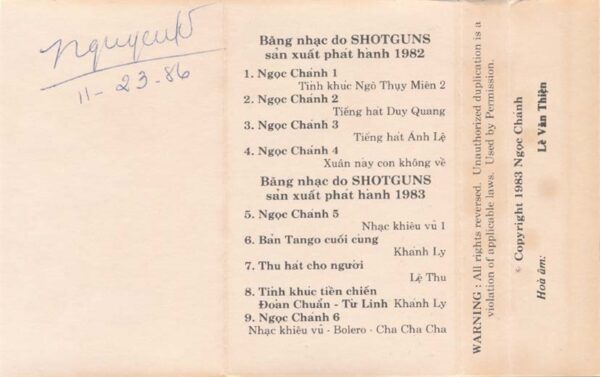 11-23-86
Băng nhạc do SHOTGUNS
sản xuất phát hành 1982
1. Ngọc Chánh 1
Tình khúc Ngô Thụy Miên 2
2. Ngọc Chánh 2
Tiếng hát Duy Quang
3. Ngọc Chánh 3
Tiếng hát Anh Lệ
4. Ngọc Chánh 4
Xuân này con không về
Băng nhạc do SHOTGUNS
sản xuất phát hành 1983
5. Ngọc Chánh 5
Nhạc khiêu vũ 1
6. Bản Tango cuối cùng
Khánh Ly
7. Thu hát cho người
Lệ Thu
8. Tình khúc tiền chiến
Đoàn Chuẩn - Từ Linh Khánh Ly
9. Ngọc Chánh 6
Nhạc khiêu vũ - Bolero - Cha Cha Cha
WARNING : All rights reversed. Unauthorized duplication is a
violation of applicable laws. Used by Permission.
© Copyright 1983 Ngọc Chánh
Hoà âm: Lê Văn Thiện